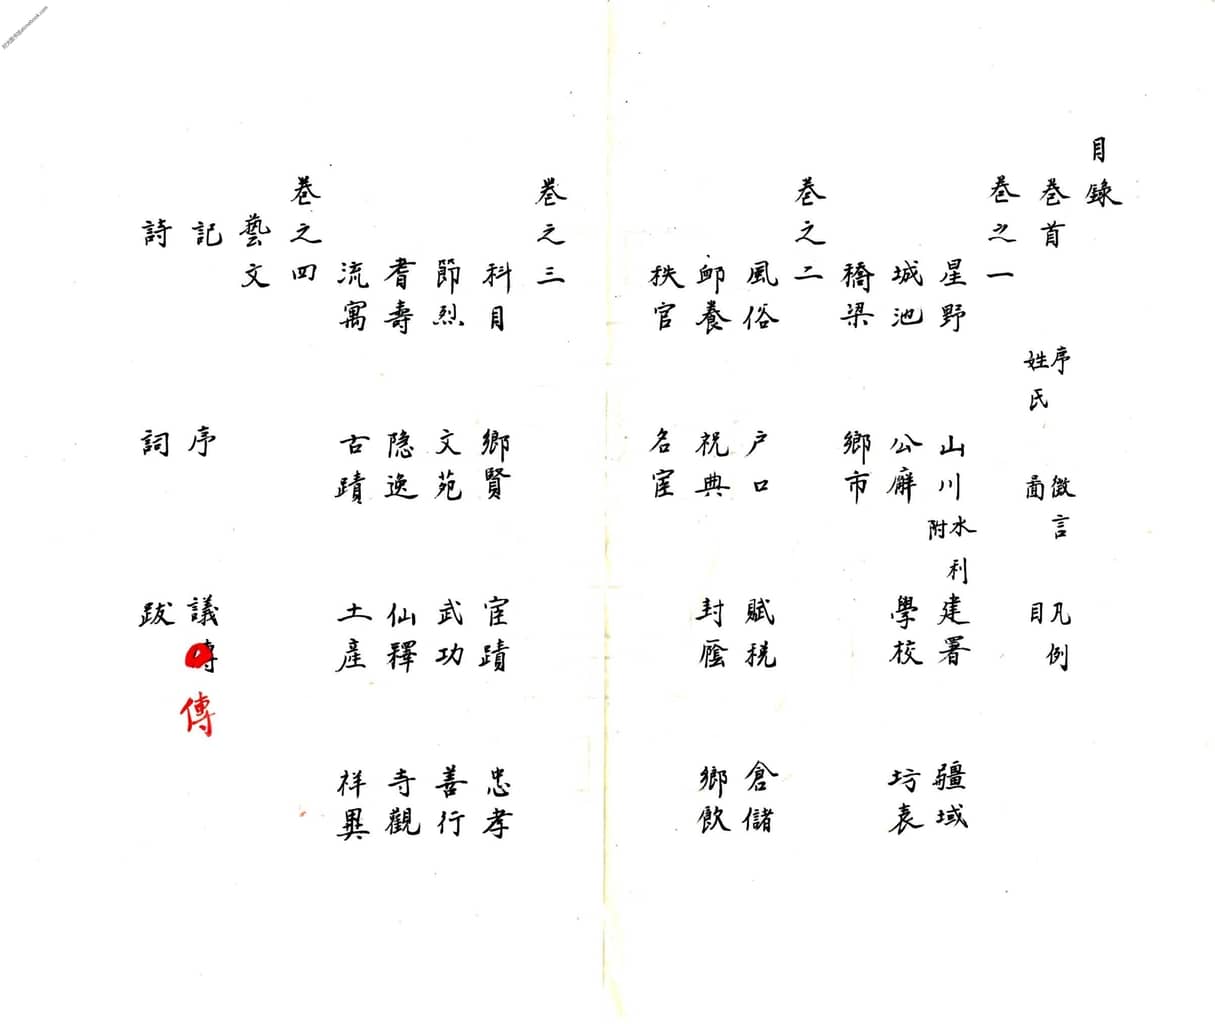 目錄
卷首 序 姓氏 徵言 圖 凡例 目
卷之一
星野 山川 水利附 建署 疆域
城池 公廨 學校 坊表
橋梁 鄉市
卷之二
風俗 户口 賦稅 倉儲
卹養 祝典 封廕 鄉飲
秩官 名宦
卷之三
科目 鄉賢 宦蹟 忠孝
節烈 文苑 武功 善行
耆壽 隐逸 仙釋 寺觀
流寓 古蹟 土產 祥異
卷之四
藝文
記 序 議 傳
詩 詞 跋